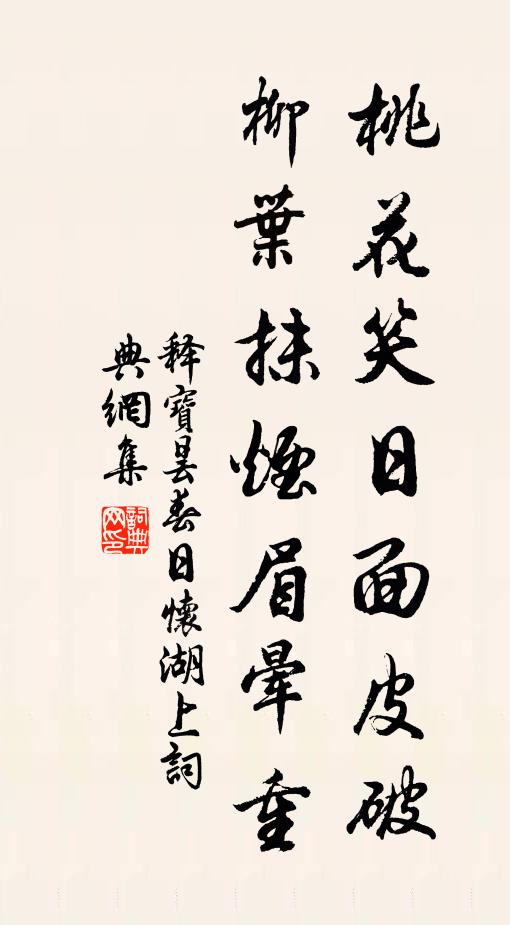 桃花笑日面皮破
柳葉抹煙眉暈重
释寶曇春日懷湖上詞
典網集
詞典网印